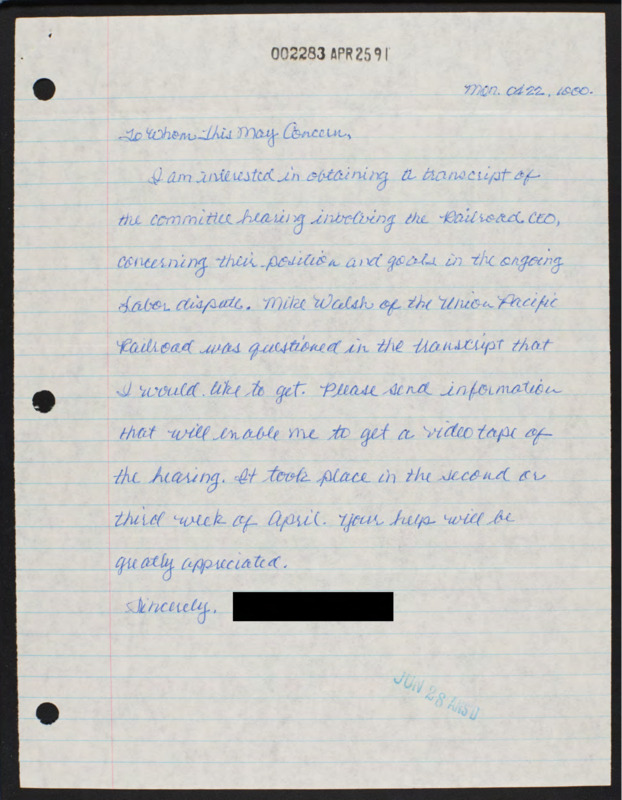 002283 APR 25 91
Mon. 22,
To Whom This May Concern,
I am interested in obtaining a transcript of
the committee hearing involving the Railroad CEO,
concerning their position and goals in the ongoing
Labor dispute. Mike Walsh of the Union Pacific
Railroad was questioned in the transcript that
I would like to get. Please send information
that will enable me to get a video tape of
the hearing. It took place in the second or
third week of April. Your help will be
greatly appreciated.
Sincerely,
JUN 28